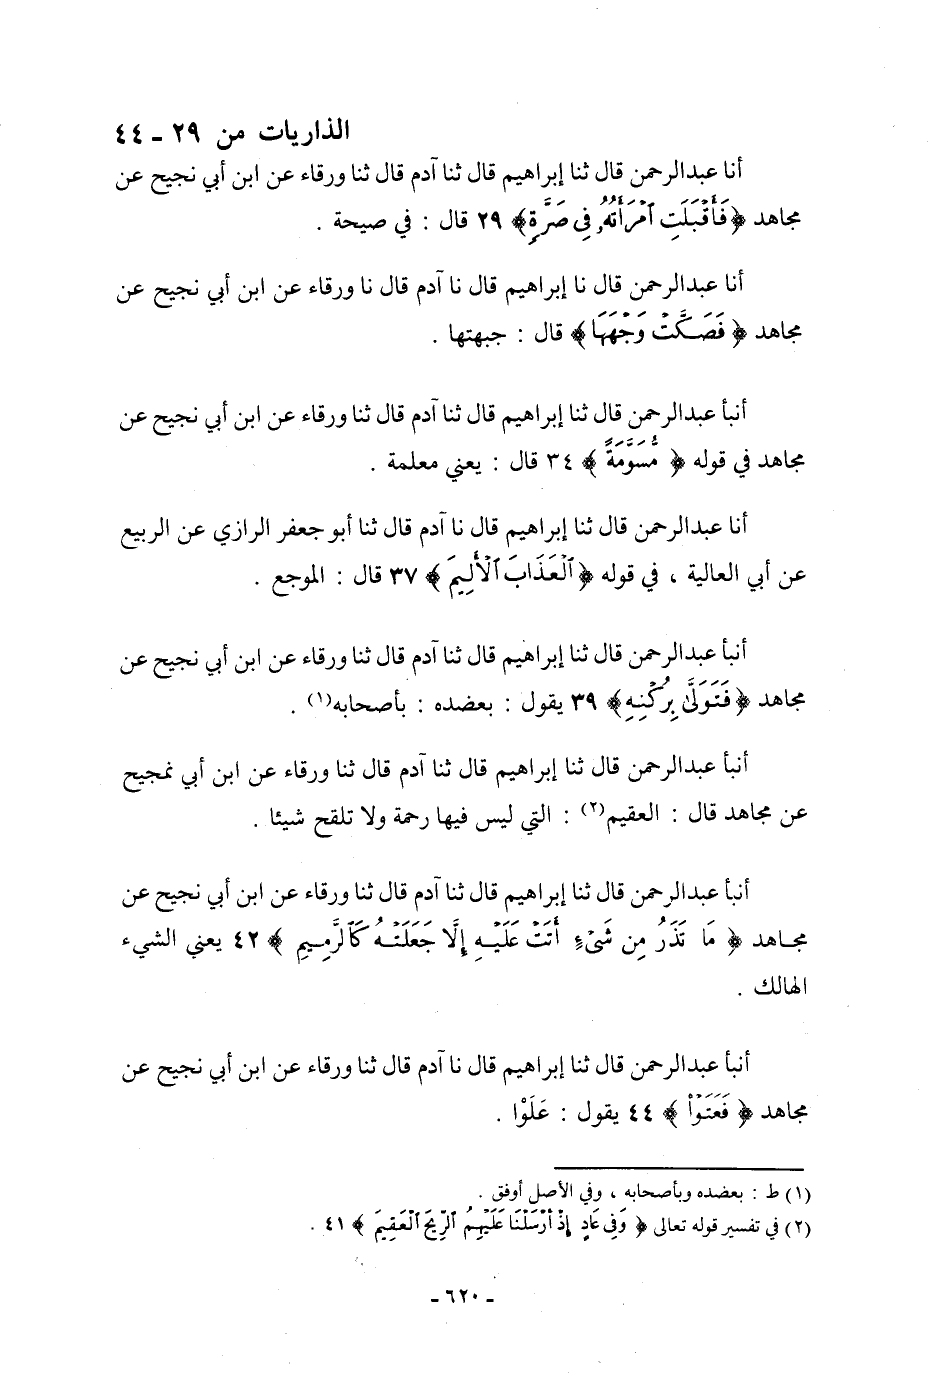 الذاريات من ٢٩ ـ ٤٤
أنا عبدالرحمن قال ثنا إبراهيم قال ثنا آدم قال ثنا ورقاء عن ابن أبي نجيح عن
مجاهد ﴿فَأَقْبَلَتِ ٱمْرَأَتُهُۥ فِى صَرَّةٍ﴾ ٢٩ قال : في صيحة .
أنا عبدالرحمن قال نا إبراهيم قال نا آدم قال نا ورقاء عن ابن أبي نجيح عن
مجاهد ﴿ فَصَكَّتْ وَجْهَهَا ﴾ قال : جبهتها .
أنبأ عبدالرحمن قال ثنا إبراهيم قال ثنا آدم قال ثنا ورقاء عن ابن أبي نجيح عن
مجاهد في قوله ﴿ مُّسَوَّمَةً ﴾ ٣٤ قال : يعني معلمة .
أنا عبدالرحمن قال ثنا إبراهيم قال نا آدم قال ثنا أبو جعفر الرازي عن الربيع
عن أبي العالية ، في قوله ﴿ ٱلْعَذَابَ ٱلْأَلِيمَ ﴾ ٣٧ قال : الموجع .
أنبأ عبدالرحمن قال ثنا إبراهيم قال ثنا آدم قال ثنا ورقاء عن ابن أبي نجيح عن
مجاهد ﴿ فَتَوَلَّىٰ بِرُكْنِهِۦ﴾ ٣٩ يقول : بعضده : بأصحابه(١) .
أنبأ عبدالرحمن قال ثنا إبراهيم قال ثنا آدم قال ثنا ورقاء عن ابن أبي نجيح
عن مجاهد قال : العقيم(٢) : التي ليس فيها رحمة ولا تلقح شيئا .
أنبأ عبدالرحمن قال ثنا إبراهيم قال ثنا آدم قال ثنا ورقاء عن ابن أبي نجيح عن
مجاهد ﴿ مَا تَذَرُ مِن شَىْءٍ أَتَتْ عَلَيْهِ إِلَّا جَعَلَتْهُ كَٱلرَّمِيمِ ﴾ ٤٢ يعني الشيء
الهالك .
أنبأ عبدالرحمن قال ثنا إبراهيم قال نا آدم قال ثنا ورقاء عن ابن أبي نجيح عن
مجاهد ﴿ فَعَتَوْا۟ ﴾ ٤٤ يقول : عَلَوْا .
(١) ط : بعضده وبأصحابه ، وفي الأصل أوفق .
(٢) في تفسير قوله تعالى ﴿ وَفِى عَادٍ إِذْ أَرْسَلْنَا عَلَيْهِمُ ٱلرِّيحَ ٱلْعَقِيمَ ﴾ ٤١ .
ـ ٦٢٠ ـ